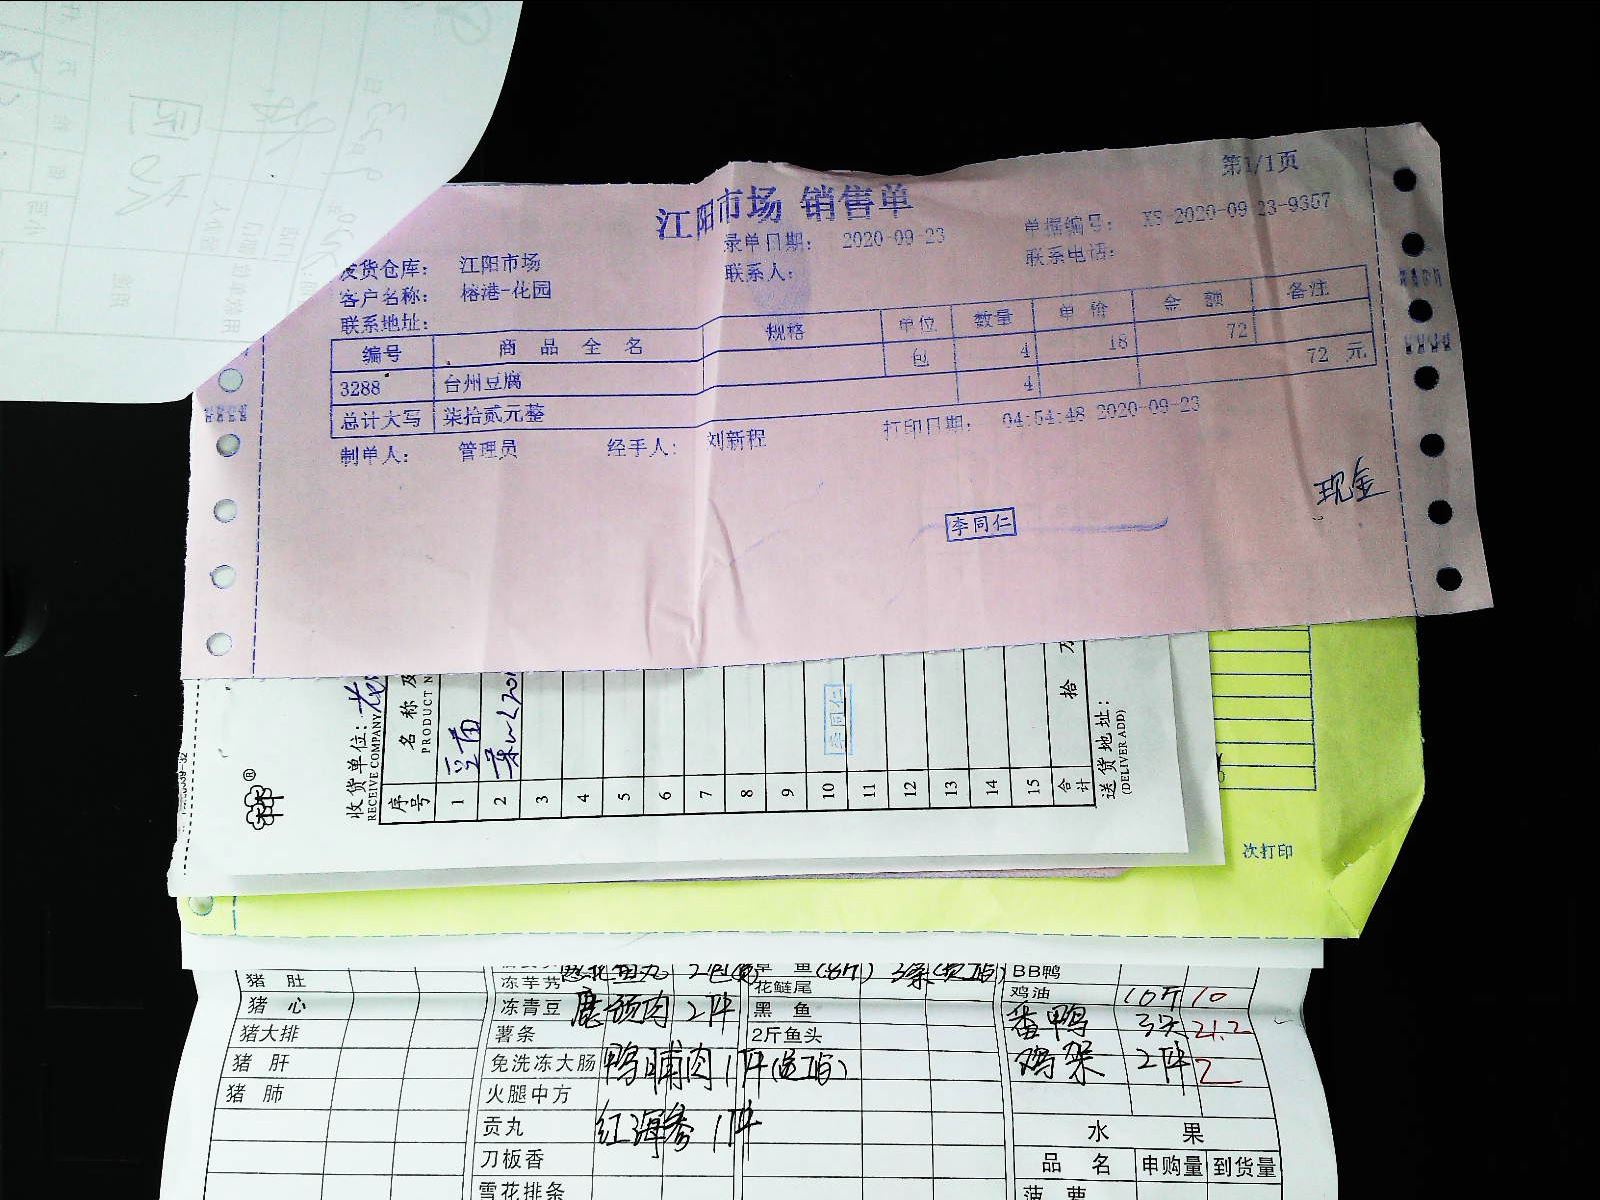 第1/1页
江阳市场 销售单
录单日期: 2020-09-23
单据编号: XS-2020-09-23-9357
发货仓库: 江阳市场
联系人:
联系电话:
客户名称: 榕港-花园
联系地址:
编号 商品全名 规格 单位 数量 单价 金额 备注
3288 台州豆腐 包 4 18 72
总计大写 柒拾贰元整 4 72 元
制单人: 管理员 经手人: 刘新程 打印日期: 04:54:48 2020-09-23
李同仁
现金
收货单位:
RECEIVE COMPANY
序号 名称及
PRODUCT N
1 豆苗
2
3
4
5
6
7
8
9
10
11
12
13
14
15
合计 拾
李同仁
送货地址:
(DELIVER ADD)
次打印
猪肚 冻芋艿 鱼丸 花鲢尾 BB鸭
猪心 冻青豆 2件 黑鱼 鸡油 10斤 10
猪大排 薯条 2斤鱼头 番鸭 3只 21.2
猪肝 免洗冻大肠 鸭脯肉 1件 鸡架 2件 2
猪肺 火腿中方
贡丸 红海参 1件 水果
刀板香 品名 申购量 到货量
雪花排条 菠萝